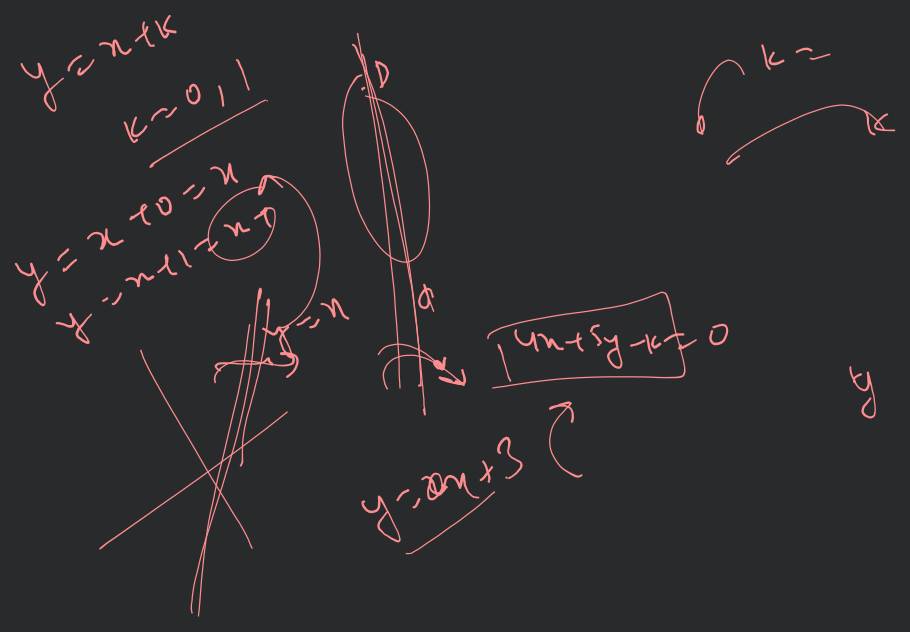 y = x + k
k = 0, 1
y = x + 0 = x
y = x + 1 = x + 1
y = x
D
k =
k
4x + 5y - k = 0
y
y = 2x + 3